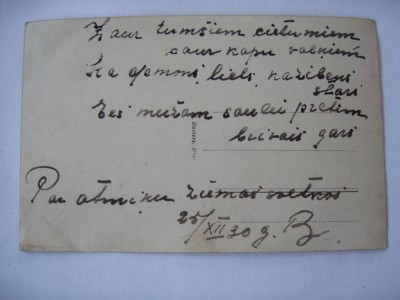 Caur tumšiem cietumiem
caur kapu valņiem
Kā gemmi liels, kā zibens
stari
Ees mūžam saulei pretim
brīvais gars
Par atmiņu Ziemas svētkos
25/XII 30 g. B.